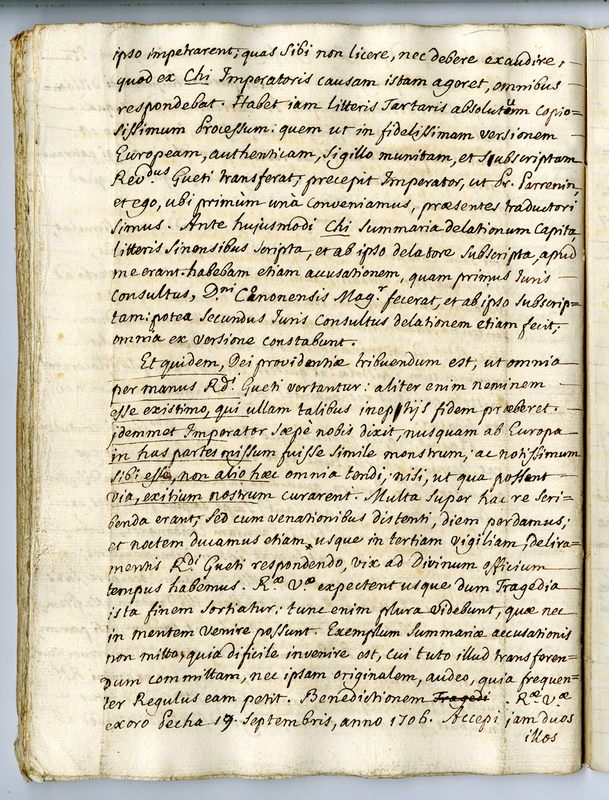 ipso impetrarent, quas sibi non licere, nec debere exaudire,
quod ex Chi Imperatoris causam istam ageret, omnibus
respondebat. Habet iam litteris Tartaris absolutum copio=
sissimum Processum: quem ut in fidelissimam versionem
Europeam, authenticam, sigillo munitam, et subscriptam
Revdus Gueti transferat, precepit Imperator, ut Pr. Parrenin,
et ego, ubi primùm unà conveniamus, præsentes traductori
simus. Ante hujusmodi Chi summaria delationum Capita
litteris Sinensibus scripta, et ab ipso delatore subscripta, apud
me erant. habebam etiam accusationem, quam primus Iuris
Consultus, D.ni Canonensis Mag.r fecerat, et ab ipso subscrip=
tam: potea secundus Iuris Consultus delationem etiam fecit,
omnia ex versione constabunt.
Et quidem, Dei providentiæ tribuendum est, ut omnia
per manus Rdi Gueti vertantur: aliter enim neminem
esse existimo, qui ullam talibus ineptijs fidem præberet.
idemmet Imperator sæpè nobis dixit, nusquam ab Europa
in has partes missum fuisse simile monstrum, ac notissimum
sibi esse, non alio hæc omnia tendi, nisi, ut qua possent
via, exitium nostrum curarent. Multa super hac re scri=
benda erant, sed cum venationibus distenti, diem perdamus,
et noctem ducamus etiam, usque in tertiam vigiliam, delira=
mentis Rdi Gueti respondendo, vix ad Divinum officium
tempus habemus. Ræ Væ expectent usque dum Tragedia
ista finem sortiatur; tunc enim plura videbunt, quæ nec
in mentem venire possunt. Exemplum summariæ accusationis
non mitto, quia dificile invenire est, cui tuto illud transferen=
dum committam, nec ipsam originalem, audeo, quia frequen=
ter Regulus eam petit. Benedictionem Tragedi . Ræ Væ
exoro Pecha 19 Septembris, anno 1706. Accepi jam duos
illos